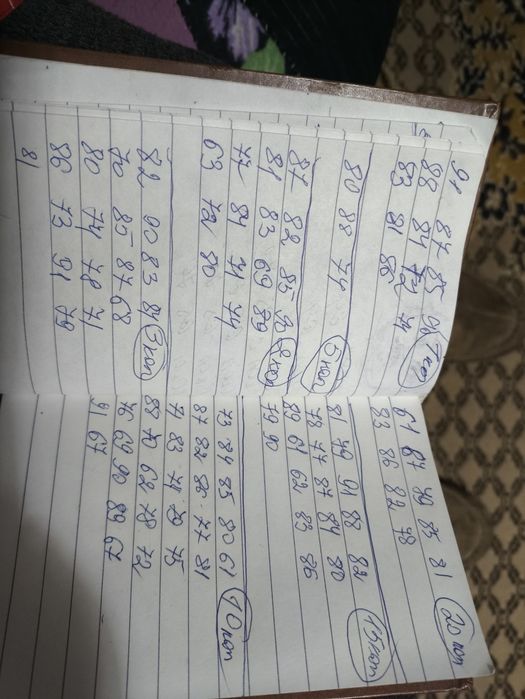 91 87 85 1 коп
88 84 72 71
83 81 86
80 88 74 5 коп
87 82 85 90 2 коп
81 83 69 89
77 84 71 74
63 72 80
82 90 83 84 3 коп
70 85 87 68
80 74 78 71
86 73 91 79
81
61 67 83 81 20 коп
83 86 82 78
81 79 91 88 82 15 коп
78 77 87 84 80
89 61 62 83 86
79 90
73 84 85 80 61 10 коп
87 82 86 77 81
71 83 78 75
88 70 62 78 72
76 69 90 89 67
91 67